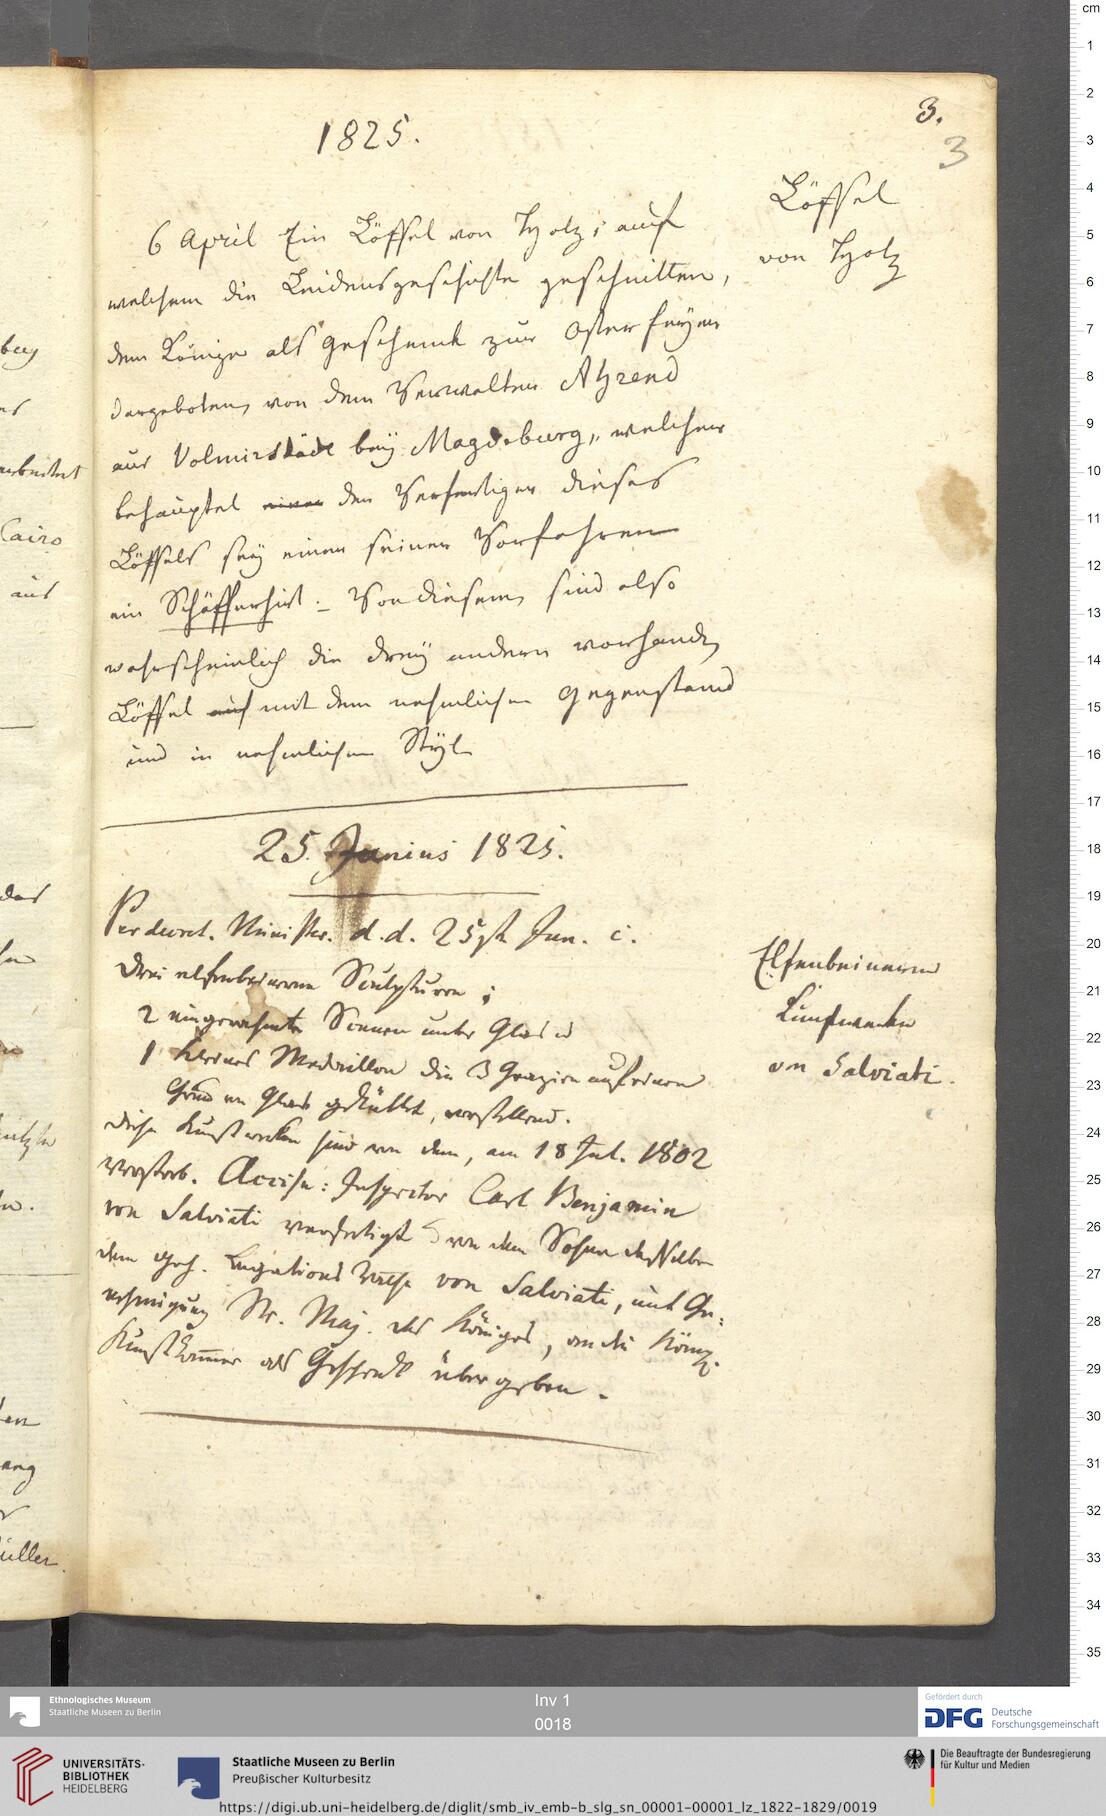 3.
3
1825.
Löffel
von Holz
6 April Ein Löffel von Holz, auf
welchem die Leidensgeschichte geschnitten,
dem Könige als Geschenk zur Osterfeyer
dargeboten, von dem Verwalter Ahrend
aus Volmirstädt bey Magdeburg, welcher
behauptet einer der Verfertiger dieses
Löffels sey einer seiner Vorfahren
ein Schäfferhirt. – Von diesem sind also
wahrscheinlich die drey andern vorhanden
Löffel auf mit dem nehmlichen Gegenstand
und in nehmlichen Styl
25. Junius 1825.
Per decret. Minister. d. d. 25st Jun. c.
Drei elfenbeinerne Sculpturen;
2 eingerahmte Scenen unter Glas u
1 kleines Medaillon die 3 Grazien auf einen
Grund von Glas geküttet, vorstellend.
Diese Kunstwerke sind von dem, am 18 Jul. 1802
verstorb. Accise: Inspector Carl Benjamin
von Salviati verfertigt u von dem Sohne desselben
dem Geh. Legations Rathe von Salviati, mit Ge:
nehmigung Sr. Maj. des Königes, an die Königl.
Kunstkammer als Geschenk übergeben.
Elfenbeinerne
Kunstwerke
von Salviati.
bey
Cairo
aus
das
üller.
cm
1
2
3
4
5
6
7
8
9
10
11
12
13
14
15
16
17
18
19
20
21
22
23
24
25
26
27
28
29
30
31
32
33
34
35
Ethnologisches Museum
Staatliche Museen zu Berlin
Inv 1
0018
Gefördert durch
DFG Deutsche
Forschungsgemeinschaft
UNIVERSITÄTS-
BIBLIOTHEK
HEIDELBERG
Staatliche Museen zu Berlin
Preußischer Kulturbesitz
Die Beauftragte der Bundesregierung
für Kultur und Medien
https://digi.ub.uni-heidelberg.de/diglit/smb_iv_emb-b_slg_sn_00001-00001_lz_1822-1829/0019